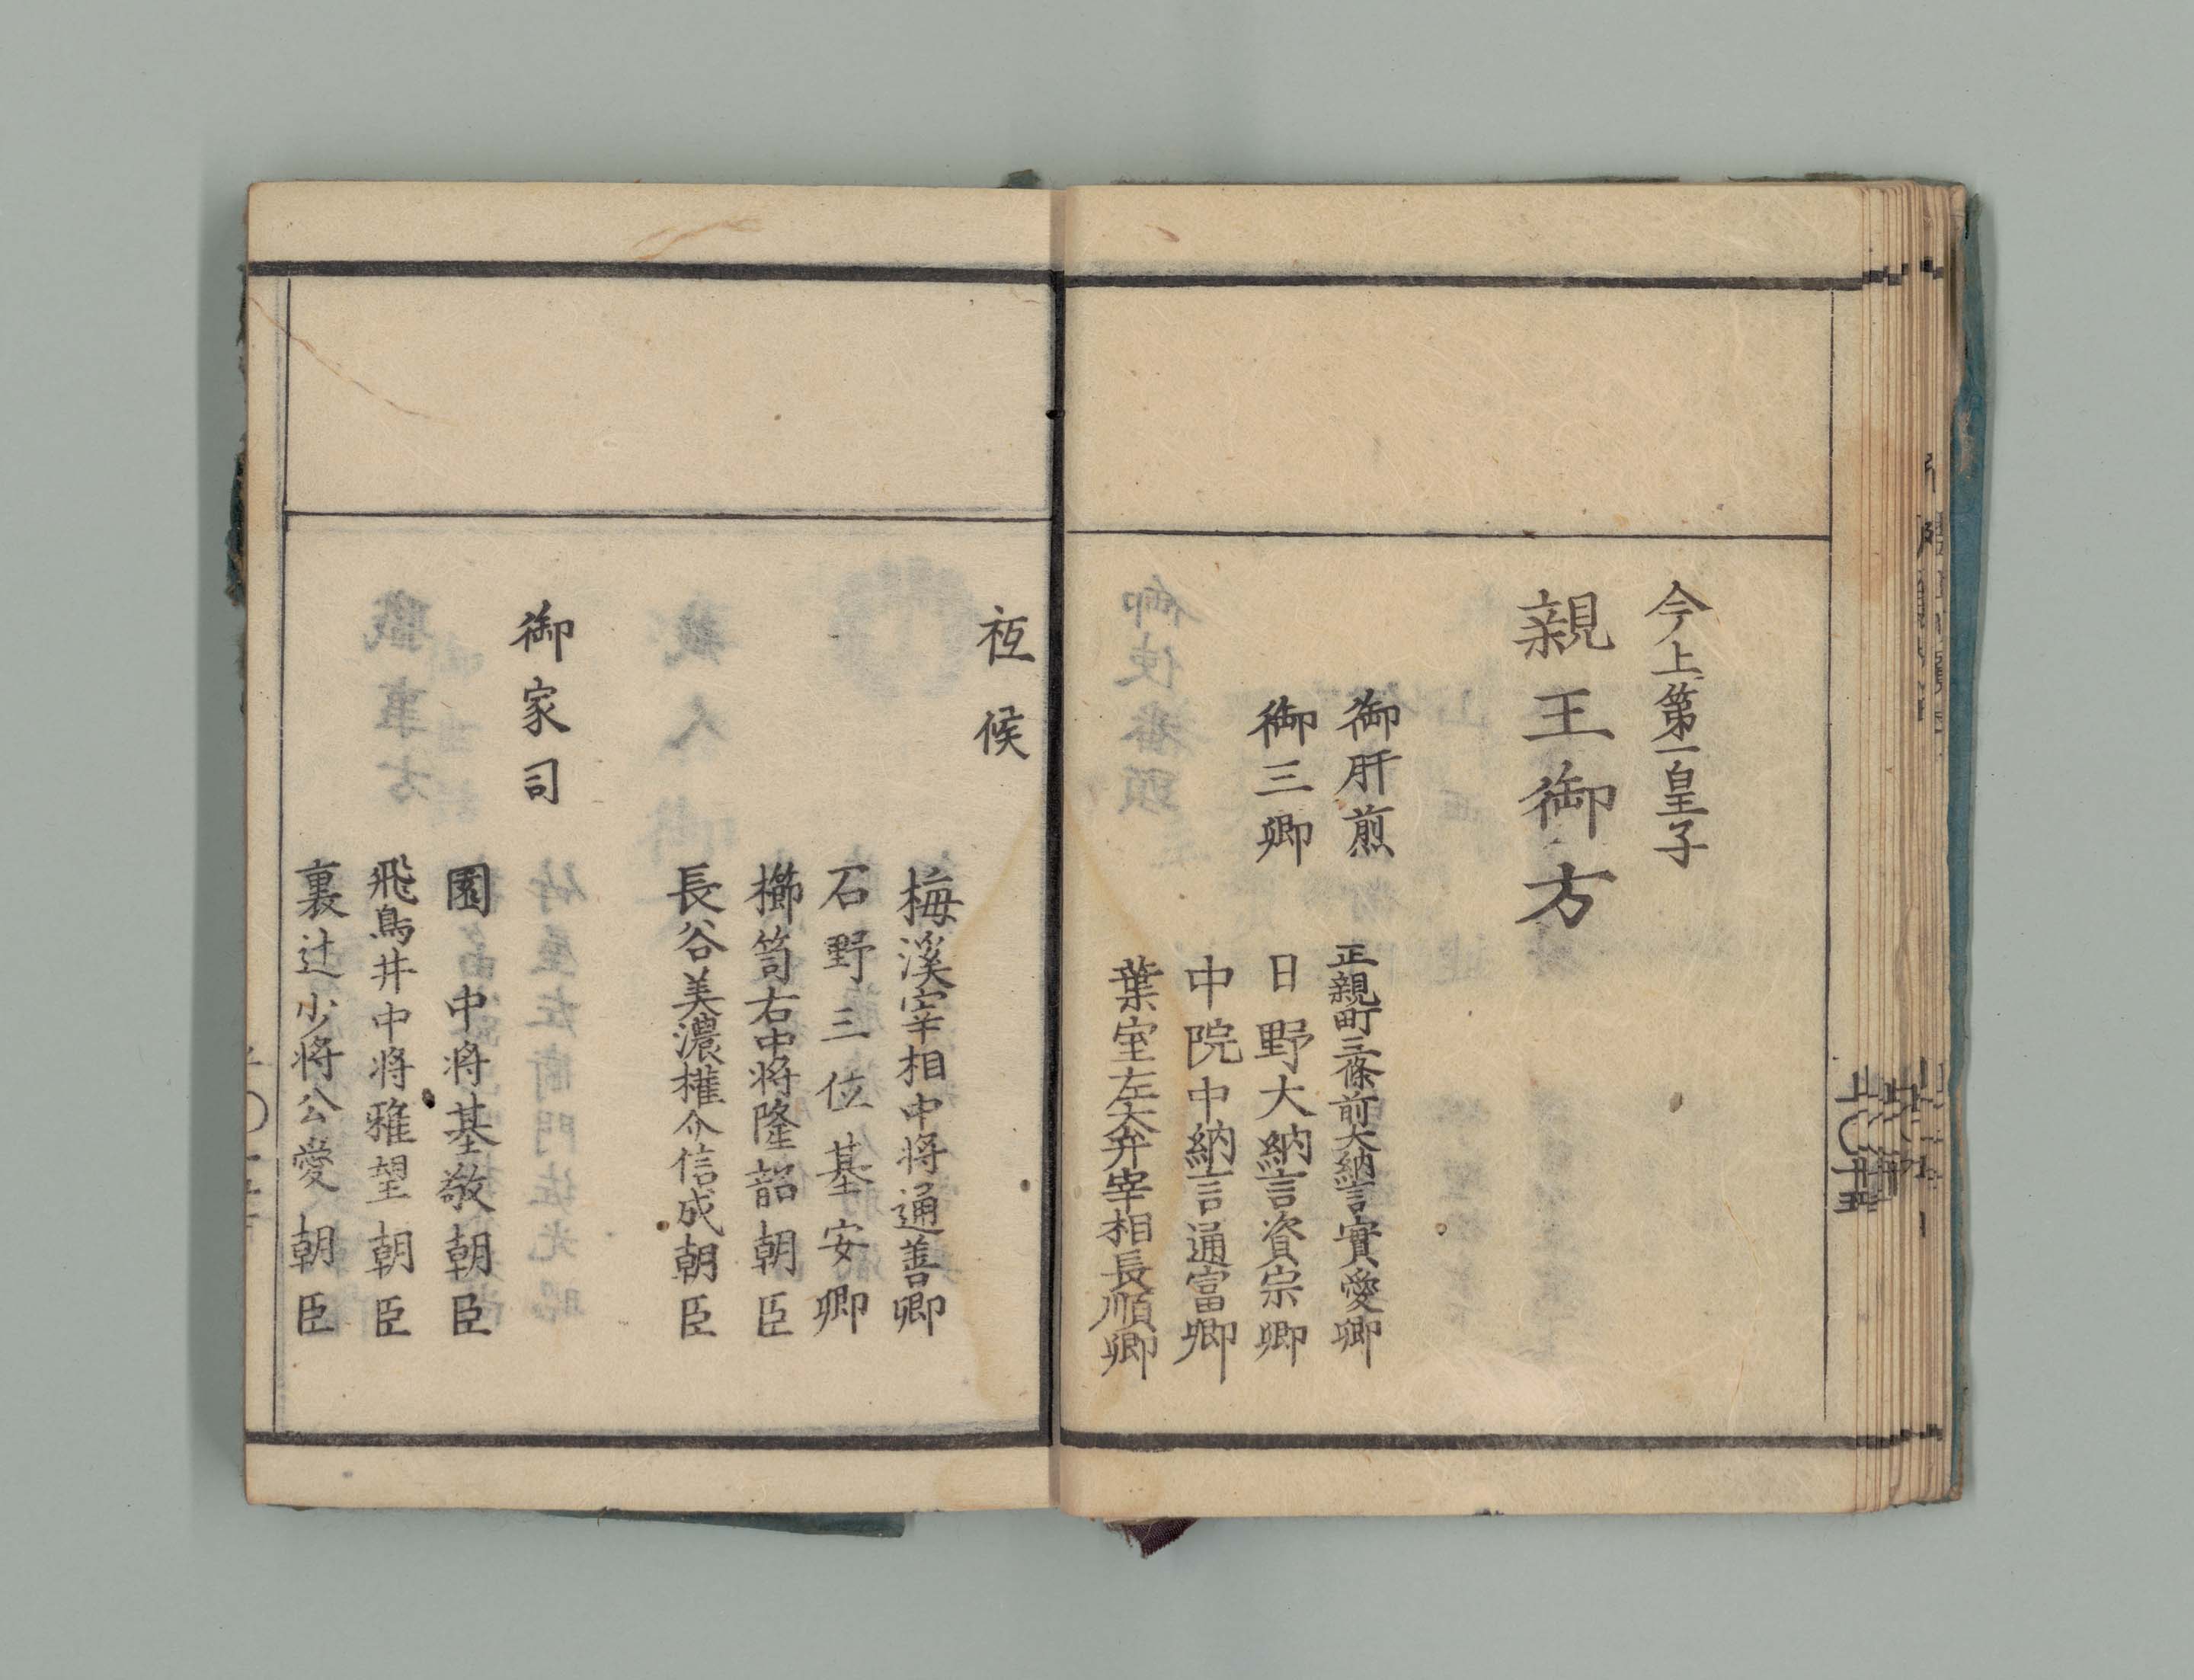 今上第一皇子
親王御方
御肝煎
正親町三條前大納言實愛卿
御三卿
日野大納言資宗卿
中院中納言通富卿
葉室左大弁宰相長順卿
祗候
梅溪宰相中将通善卿
石野三位基安卿
櫛笥右中将隆韶朝臣
長谷美濃權介信成朝臣
御家司
園中将基敬朝臣
飛鳥井中将雅望朝臣
裏辻少将公愛朝臣